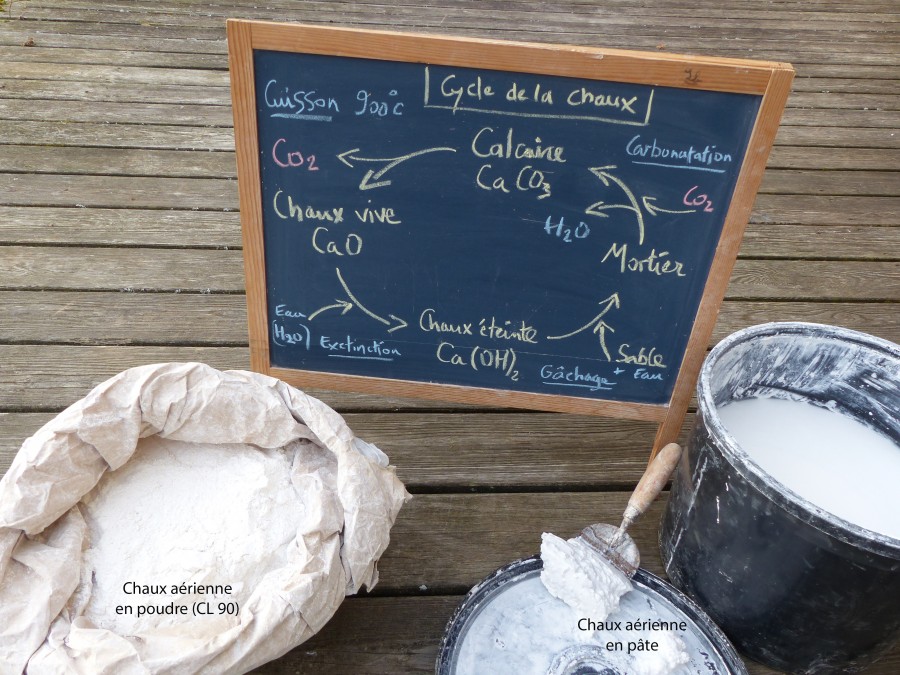 Cycle de la chaux
Cuisson 900°C
CO2
Calcaire
CaCO3
Carbonatation
CO2
H2O
Chaux vive
CaO
Mortier
Eau
(H2O)
Exctinction
Chaux éteinte
Ca(OH)2
Gâchage
Sable
+ Eau
Chaux aérienne
en poudre (CL 90)
Chaux aérienne
en pâte